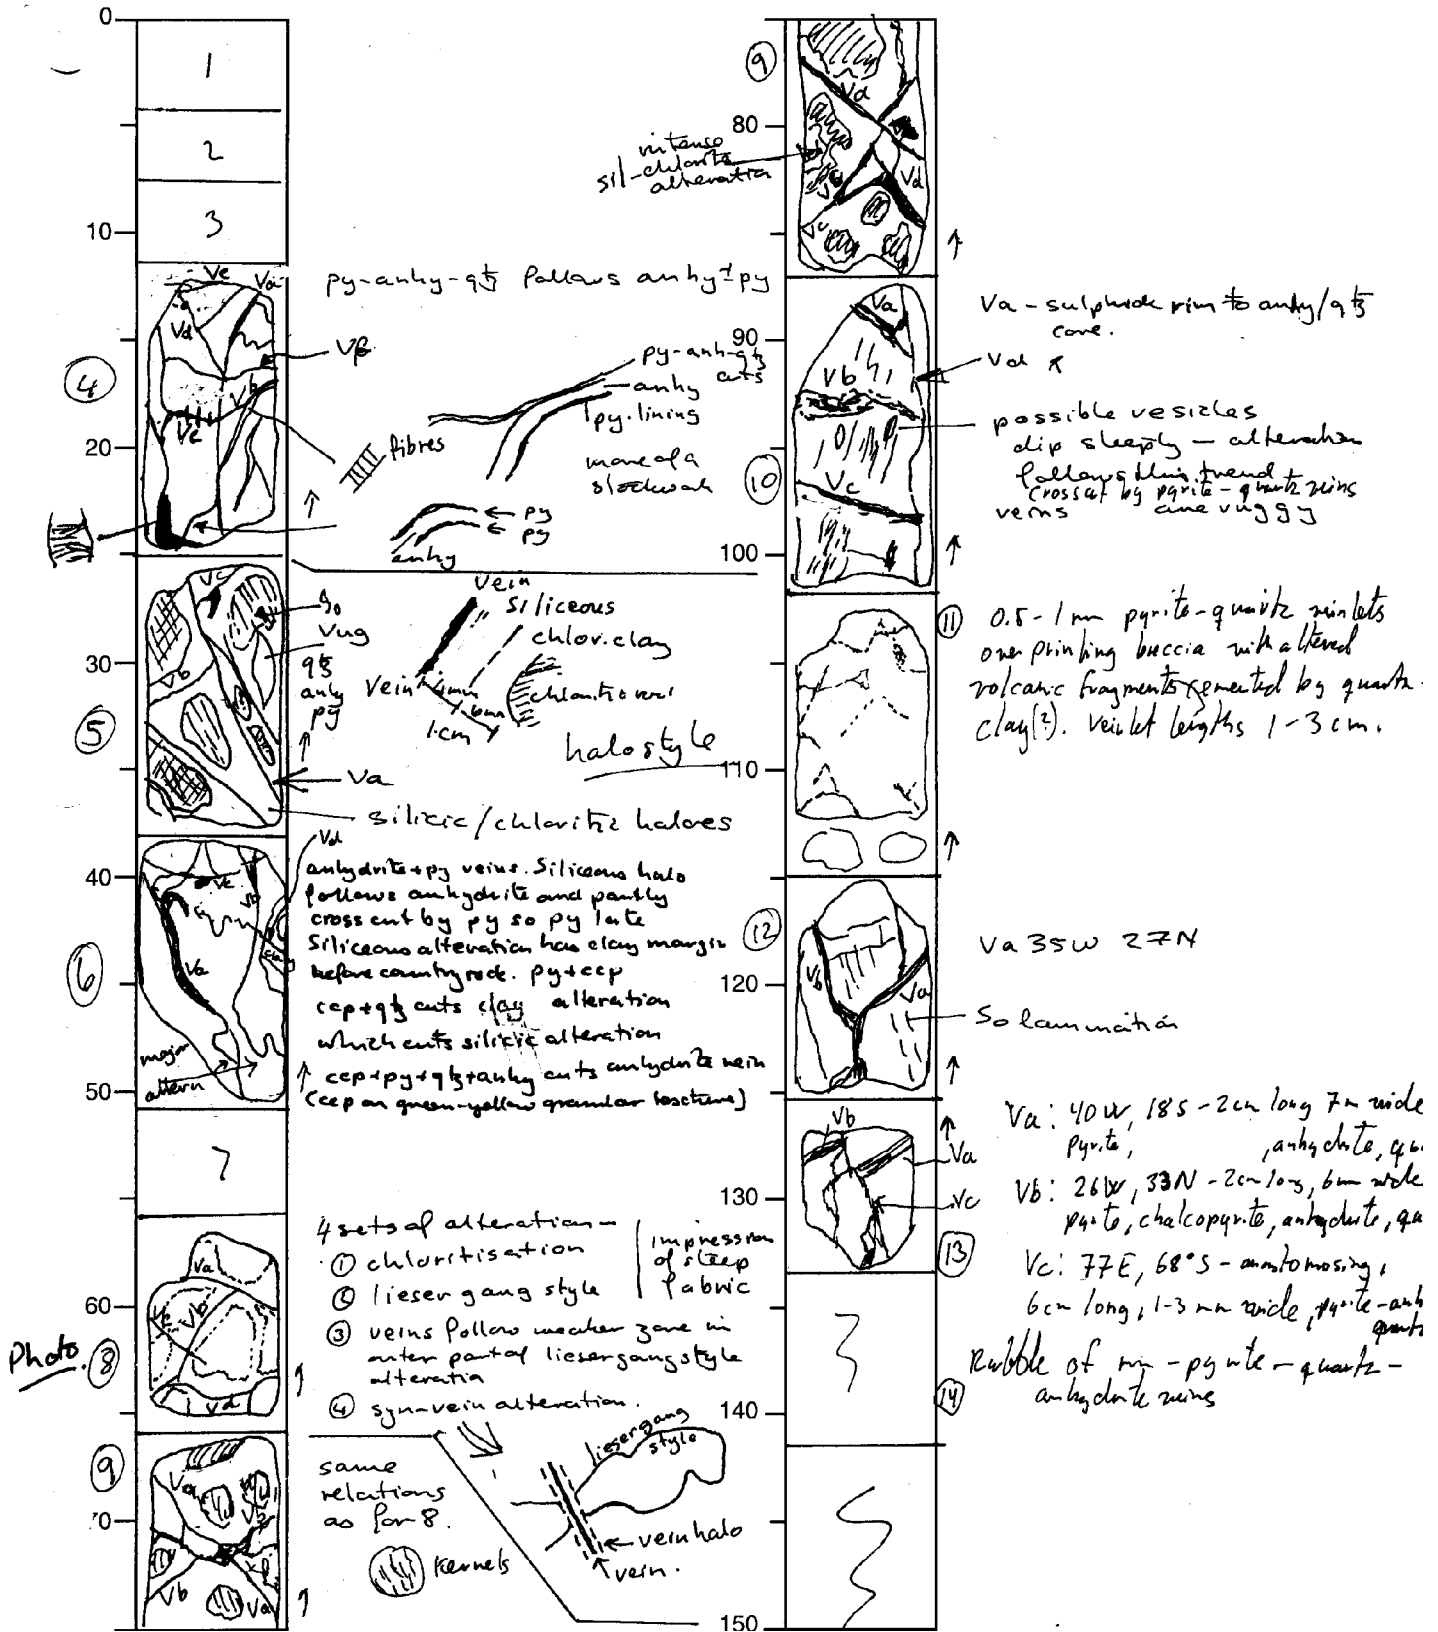 0
1
2
3
10
Ve
Va
Vd
py-anhy-qtz follows anhy±py
Vβ
4
Vb
Vc
20
py-anh-qtz
cuts
anhy
py. lining
fibres
more of a
stockwork
py
py
anhy
Vc
So
Vug
qtz
anhy
py
30
Vb
5
Va
vein
siliceous
chlor.clay
vein
4mm
6mm
1cm
halo style
silicic/chloritic haloes
Vd
40
Vc
Va
6
major
altern
50
anhydrite+py veins. Siliceous halo
follows anhydrite and partly
crosscut by py so py late
Siliceous alteration has clay margin
before country rock. py+ccp
ccp+qtz cuts clay alteration
which cuts silicic alteration
ccp+py+qtz+anhy cuts anhydrite vein
(ccp on green-yellow granular
7
4 sets of alteration-
① chloritisation
② lieser gang style
impression
of steep
fabric
③ veins follow weaker zone in
outer part of liesergang style
alteration
④ syn-vein alteration.
Va
Vb
Vc
60
Photo. 8
Vd
9
Va
Vb
70
Vb
Va
same
relations
as for 8.
Kernels
liesergang
style
vein halo
vein.
9
Vd
80
intense
sil-chlorite
alteration
Vd
Vc
Va
90
Vb
Vd
Va - sulphide rim to anhy/qtz
core.
possible vesicles
dip steeply - alteration
follows this trend
crosscut by pyrite-quartz veins
veins are vuggy
10
Vc
100
11
0.5-1mm pyrite-quartz veinlets
overprinting breccia with altered
volcanic fragments cemented by quartz-
clay(?). Veinlet lengths 1-3cm.
110
12
Vb
Va
120
Va 35W 27N
So lamination
Vb
Va
Vc
130
13
Va: 40W, 18S - 2cm long 7m wide
pyrite, , anhydrite, qu
Vb: 26W, 33N - 2cm long, 6mm wide
pyrite, chalcopyrite, anhydrite, qu
Vc: 77E, 68°S - anastomosing,
6cm long, 1-3mm wide, pyrite-anh
quartz
14
Rubble of - pyrite - quartz -
anhydrite veins
140
150